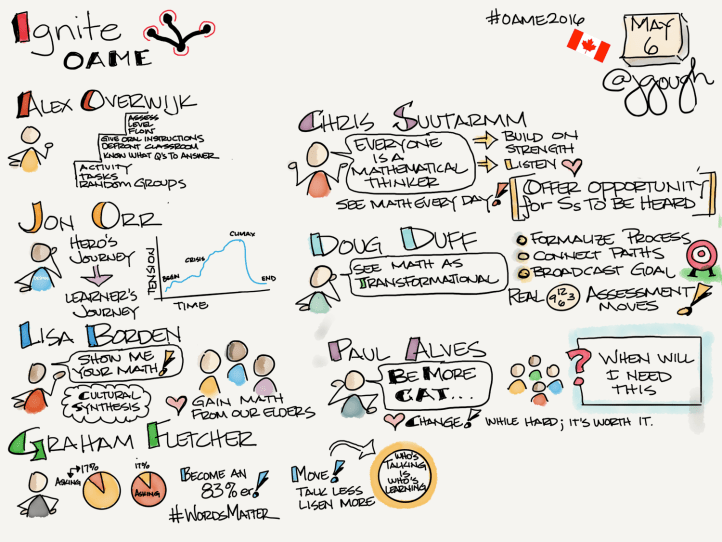 Ignite
OAME
#OAME2016
MAY
6
@jgough
ALEX OVERWIJK
ASSESS
LEVEL
FLOW
GIVE ORAL INSTRUCTIONS
DEFRONT CLASSROOM
KNOW WHAT Q'S TO ANSWER
ACTIVITY
TASKS
RANDOM GROUPS
JON ORR
HERO'S
JOURNEY
LEARNER'S
JOURNEY
TENSION
BEGIN
CRISIS
CLIMAX
END
TIME
LISA BORDEN
SHOW ME
YOUR MATH!
CULTURAL
SYNTHESIS
GAIN MATH
FROM OUR ELDERS
GRAHAM FLETCHER
ASKING
17%
17%
ASKING
BECOME AN
83% er!
#WORDSMATTER
MOVE!
TALK LESS
LISEN MORE
WHO'S
TALKING
IS
WHO'S
LEARNING
CHRIS SUUTARMM
EVERYONE
IS A
MATHEMATICAL
THINKER
BUILD ON
STRENGTH
LISTEN
SEE MATH EVERY DAY!
[OFFER OPPORTUNITY
for Ss TO BE HEARD]
DOUG DUFF
SEE MATH AS
TRANSFORMATIONAL
FORMALIZE PROCESS
CONNECT PATHS
BROADCAST GOAL
REAL
12
9 3
6
ASSESSMENT
MOVES!
PAUL ALVES
BE MORE
CAT...
CHANGE! WHILE HARD; IT'S WORTH IT.
?
WHEN WILL
I NEED
THIS